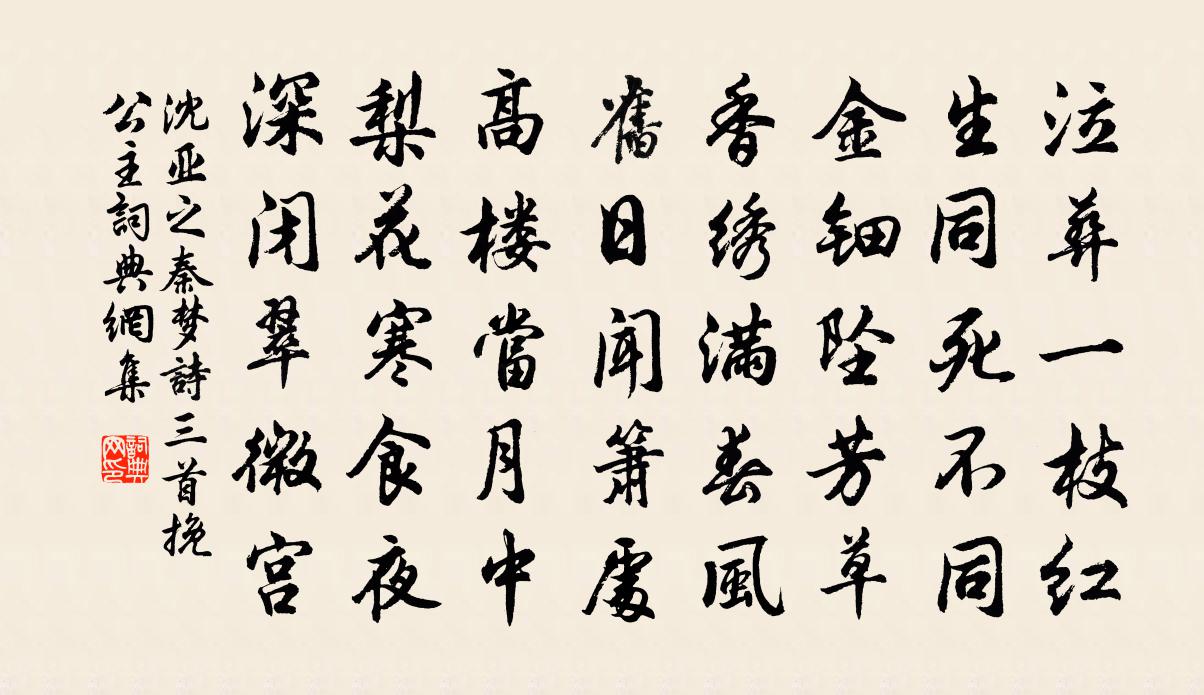 泣葬一枝红
生同死不同
金钿坠芳草
香绣满春風
舊日闻箫處
高楼當月中
梨花寒食夜
深闭翠微宫
沈亚之秦梦詩三首挽
公主詞典網集
詞典网印